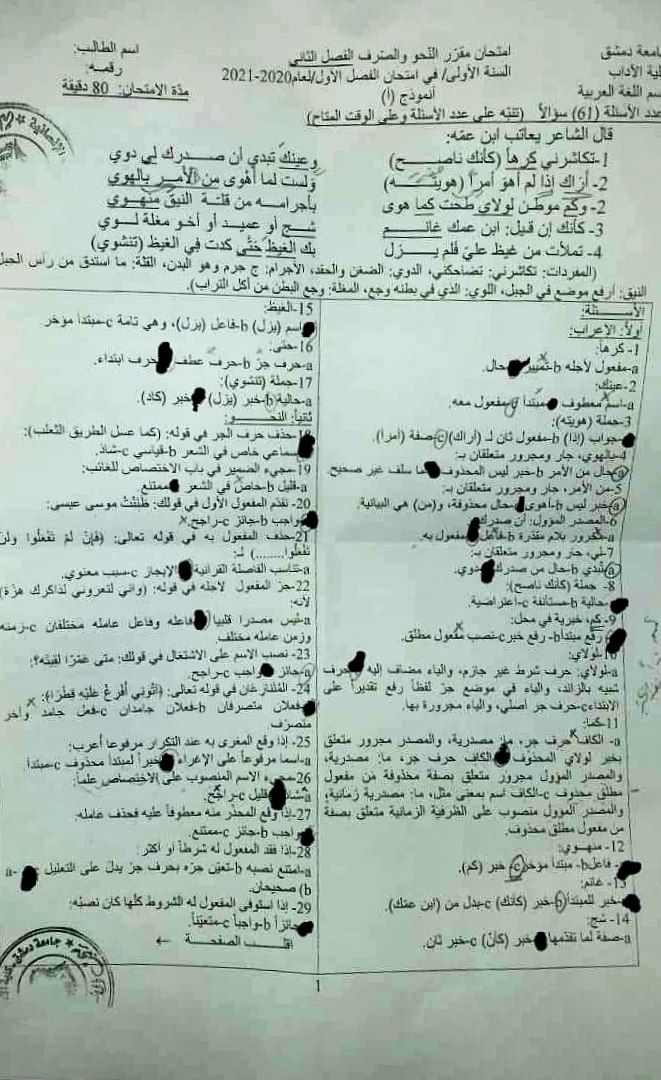 جامعة دمشق
كلية الآداب
قسم اللغة العربية
امتحان مقرّر النّحو والصّرف الفصل الثاني
السّنة الأولى/ في امتحان الفصل الأول/لعام2020-2021
أنموذج (أ)
اسم الطالب:
رقمه:
مدّة الامتحان: 80 دقيقة
عدد الأسئلة (61) سؤالاً (تنبّه على عدد الأسئلة وعلى الوقت المتاح)
قال الشاعر يعاتب ابن عمّه:
1-تكاشرني كرهاً (كأنك ناصح) وعينك تبدي أن صدرك لي دوي
2- أراك إذا لم أهوَ أمراً (هويته) ولست لما أهوى من الأمر بالهوي
2- وكم موطن لولاي طحت كما هوى بأجرامه من قلة النيق منهوي
3- كأنك إن قيل: ابن عمك غانم شجٍ أو عميد أو أخو مغلة لوي
4- تملأت من غيظ عليّ فلم يزل بك الغيظ حتّى كدت في الغيظ (تنشوي)
(المفردات: تكاشرني: تضاحكني، الدوي: الضغن والحقد، الأجرام: ج جرم وهو البدن، القلة: ما استدق من رأس الجبل
النيق: أرفع موضع في الجبل، اللوي: الذي في بطنه وجع، المغلة: وجع البطن من أكل التراب).
الأسئلة:
أولاً: الإعراب:
1- كرهاً:
a-مفعول لأجله b-تمييز حال.
2-عينك:
a-اسم معطوف مبتدأ مفعول معه.
3-جملة (هويته):
جواب (إذا) b-مفعول ثان لـ (أراك) c-صفة (أمرا).
4-بالهوي، جار ومجرور متعلقان بـ:
a-حال من الأمر b-خبر ليس المحذوف ما سلف غير صحيح.
5-من الأمر، جار ومجرور متعلقان بـ:
a-خبر ليس b-أهوى حال محذوفة، و(من) هي البيانية.
6-المصدر المؤول: أن صدرك
a-مجرور بلام مقدرة b-فاعل مفعول به.
7-لي، جار ومجرور متعلقان بـ:
a-تبدي b-حال من صدرك دوي.
8- جملة (كأنك ناصح):
حالية b-مستأنفة c-اعتراضية.
9-كم، خبرية في محل:
رفع مبتدأ b- رفع خبر c-نصب مفعول مطلق.
10-لولاي:
a-لولاي: حرف شرط غير جازم، والياء مضاف إليه حرف
شبيه بالزائد، والياء في موضع جرّ لفظاً رفع تقديراً على
الابتداء c-حرف جر أصلي، والياء مجرورة بها.
11-كما:
a- الكاف حرف جر، ما: مصدرية، والمصدر مجرور متعلق
بخبر لولاي المحذوف الكاف حرف جر، ما: مصدرية،
والمصدر المؤول مجرور متعلق بصفة محذوفة من مفعول
مطلق محذوف c-الكاف اسم بمعنى مثل، ما: مصدرية زمانية،
والمصدر المؤول منصوب على الظرفية الزمانية متعلق بصفة
من مفعول مطلق محذوف.
12- منهوي:
فاعل b- مبتدأ مؤخر c- خبر (كم).
13- غانم:
خبر للمبتدأ b-خبر (كأنك) c-بدل من (ابن عمّك).
14- شج:
a-صفة لما تقدّمها خبر (كأنّ) c-خبر ثان.
15-الغيظ:
اسم (يزل) b-فاعل (يزل)، وهي تامة c-مبتدأ مؤخر.
16-حتى:
a-حرف جرّ b-حرف عطف حرف ابتداء.
17-جملة (تنشوي):
a-حالية b-خبر (يزل) خبر (كاد).
ثانياً: النحو:
18-حذف حرف الجر في قوله: (كما عسل الطريق الثعلب):
سماعي خاص في الشعر b-قياسي c-شاذ.
19-مجيء الضمير في باب الاختصاص للغائب:
a-قليل b-خاصّ في الشعر ممتنع.
20- تقدّم المفعول الأول في قولك: ظَنَنْتُ موسى عيسى:
واجب b-جائز c-راجح.
21-حذف المفعول به في قوله تعالى: (فإنْ لَمْ تَفْعَلُوا ولن
تفعلُوا........) لـ:
a-تناسب الفاصلة القرآنية الإيجاز c-سبب معنوي.
22-جرّ المفعول لأجله في قوله: (وإني لتعروني لذكراك هزّة)
لأنه:
a-ليس مصدرا قلبيا فاعله وفاعل عامله مختلفان c-زمنه
وزمن عامله مختلف.
23- نصب الاسم على الاشتغال في قولك: متى عَمْرًا لقيتَه؟:
a-جائز واجب c-راجح.
24- المُتنازعان في قوله تعالى: (آتُوني أُفْرِغْ عَلَيْهِ قِطْرًا):
فعلان متصرفان b-فعلان جامدان c-فعل جامد وآخر
متصرّف
25- إذا وقع المغرى به عند التكرار مرفوعا أعرب:
a-اسما مرفوعاً على الإغراء خبراً لمبتدأ محذوف c-مبتدأ.
26-مجيء الاسم المنصوب على الاختصاص علماً:
a-شاذ قليل c-راجح.
27-إذا وقع المحذر منه معطوفاً عليه فحذف عامله:
واجب b-جائز c-ممتنع.
28-إذا فقد المفعول له شرطاً أو أكثر:
a-امتنع نصبه b-تعيّن جرّه بحرف جرّ يدلّ على التعليل a-
b) صحيحان.
29- إذا استوفى المفعول له الشروط كلّها كان نصبُه:
جائزاً b-واجباً c-متعيّناً.
اقلب الصفحة ←
1